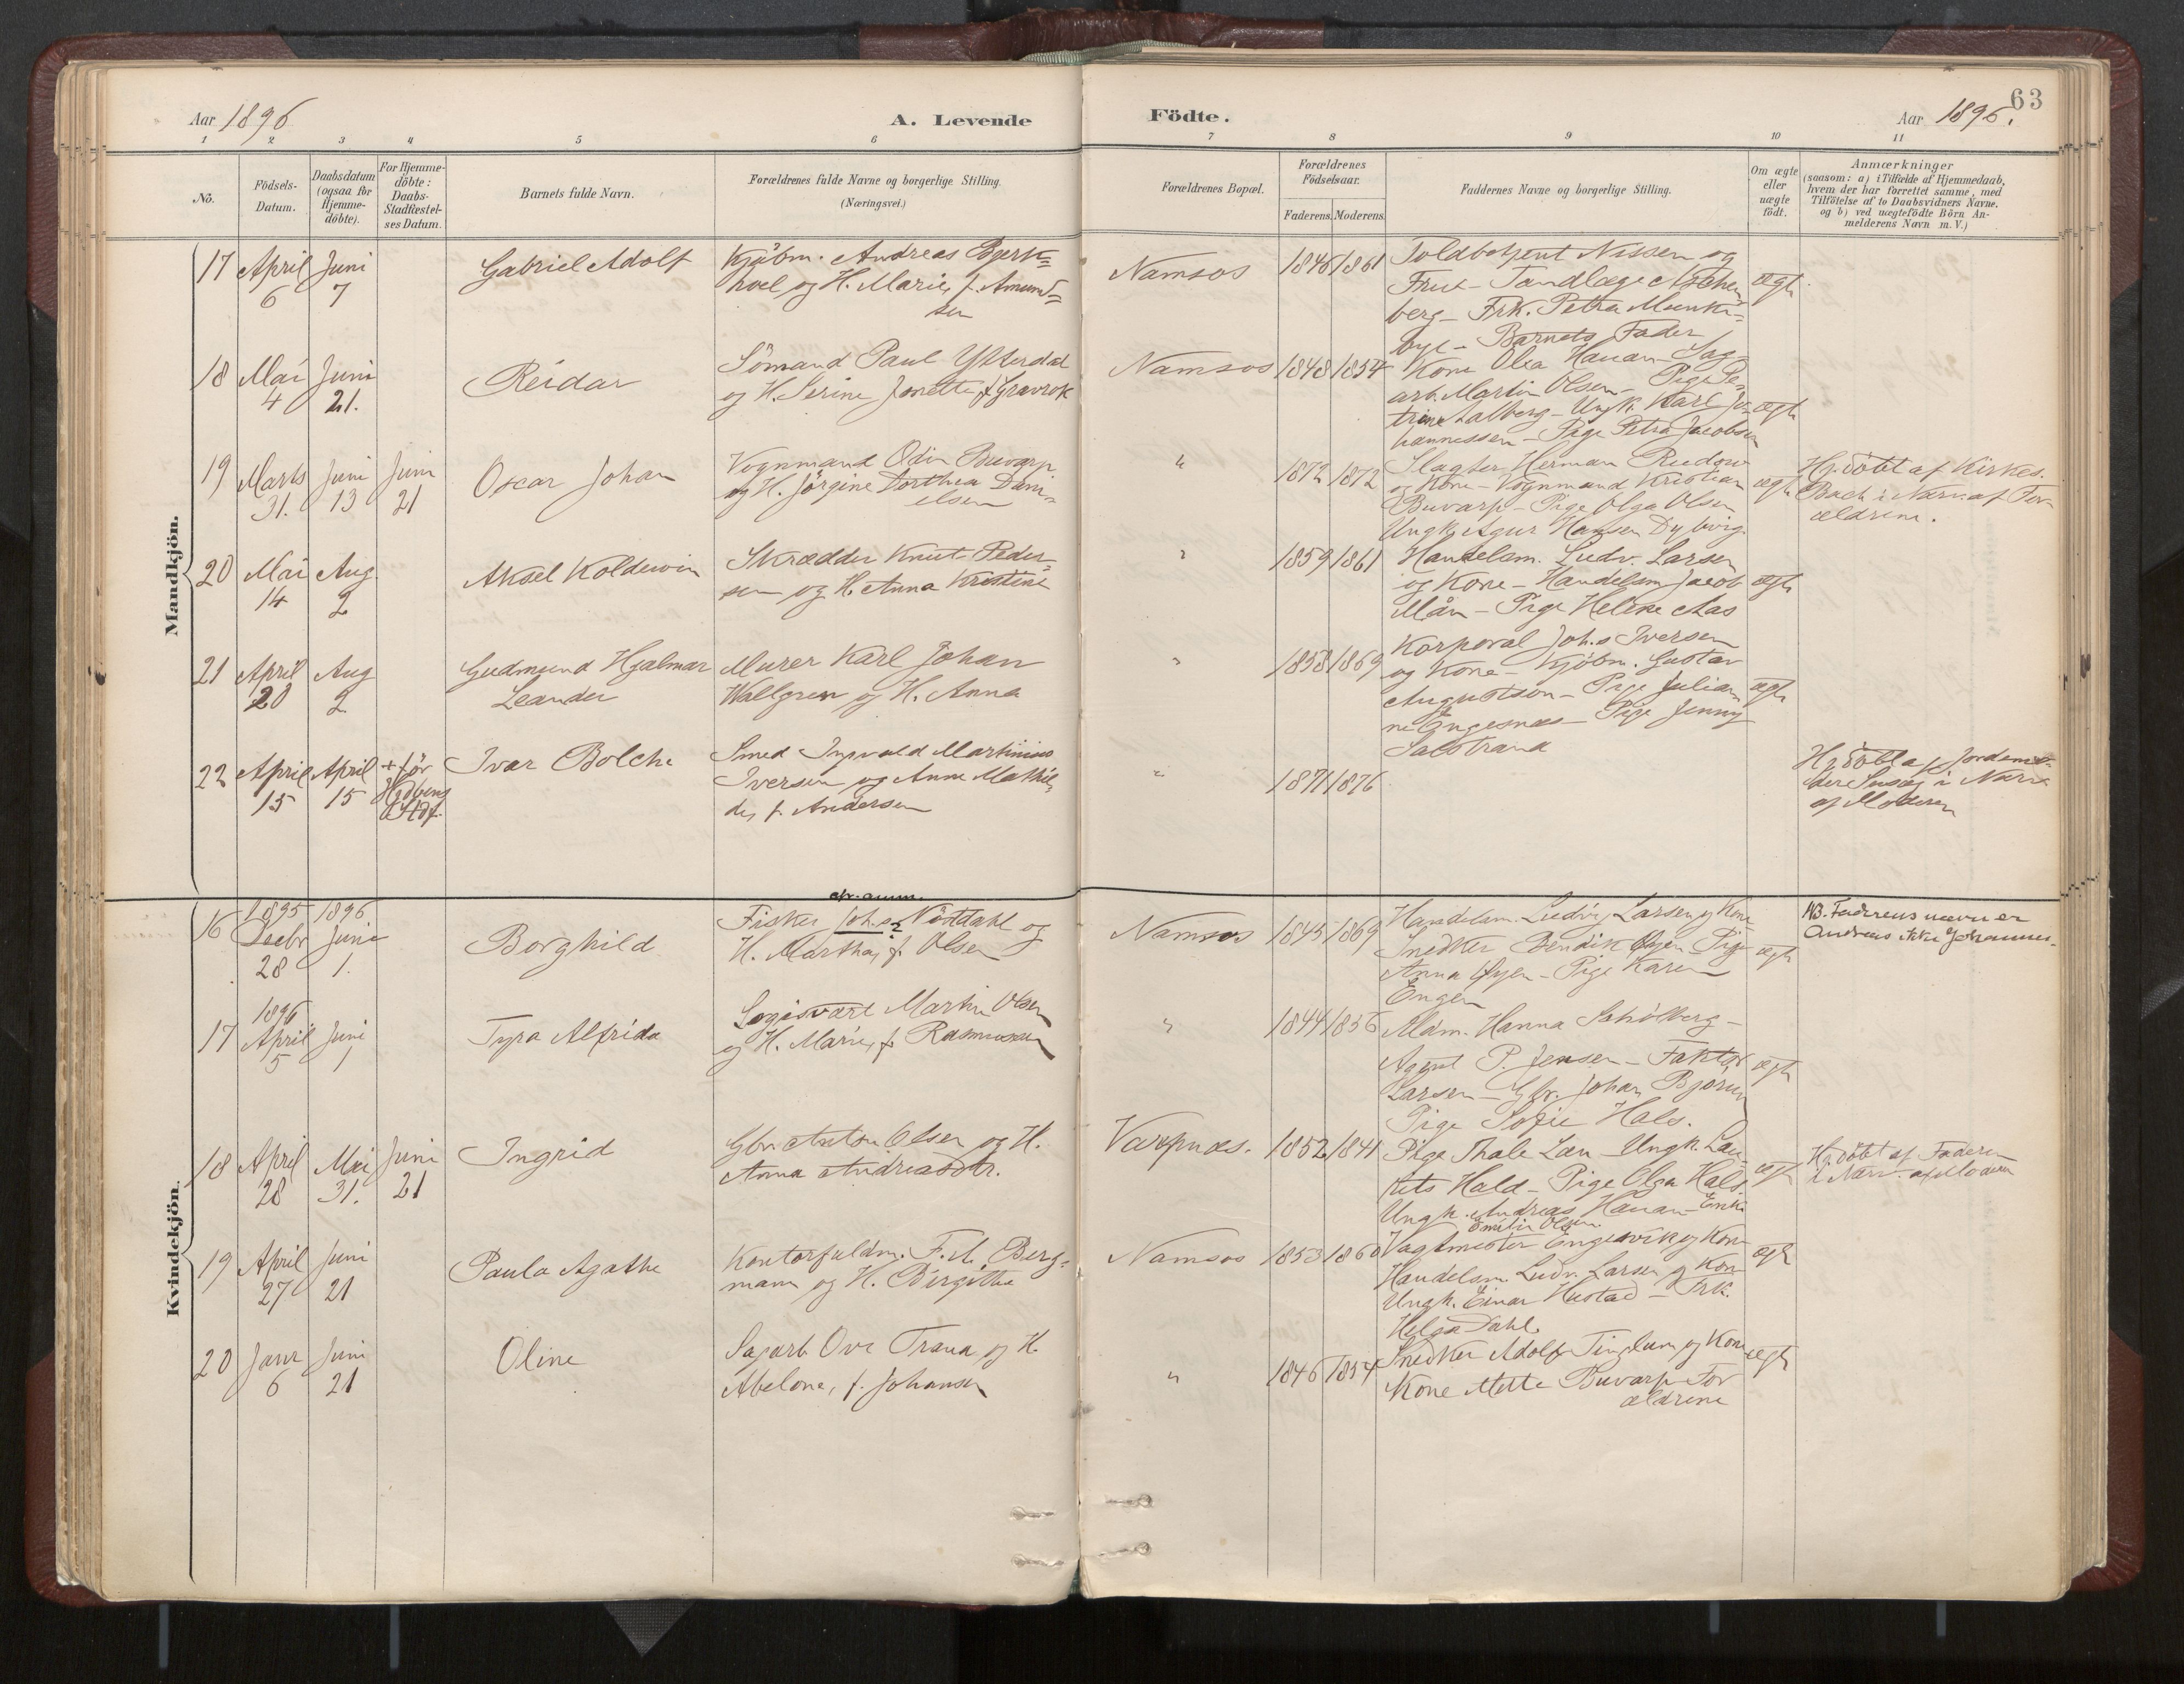 63
Aar 1896
A. Levende
Födte.
Aar 1896.
1 2 3 4 5 6 7 8 9 10 11
No.
Födsels-
Datum.
Daabsdatum
(ogsaa for
Hjemme-
döbte).
For Hjemme-
döbte:
Daabs-
Stadfæstel-
ses Datum.
Barnets fulde Navn.
Forældrenes fulde Navne og borgerlige Stilling.
(Næringsvei.)
Forældrenes Bopæl.
Forældrenes
Födselsaar.
Faderens. Moderens.
Faddernes Navne og borgerlige Stilling.
Om ægte
eller
uægte
födt.
Anmærkninger
(saasom: a) i Tilfælde af Hjemmedaab,
hvem der har forrettet samme, med
Tilföielse af to Daabsvidners Navne,
og b) ved uægtefödte Börn An-
melderens Navn m. V.)
Mandkjön.
17
April
6
Juni
7
Gabriel Adolf
Kjöbm. Andreas Bjerk=
hoel og H. Marie, f. Amund=
sen
Namsos
1846 1861
Toldbetjent Nissen og
Frue - Tandlæge
berg - Frk. Petra Munke=
bye - Barnets Fader
ægte
18
Mai
4
Juni
21.
Reidar
Sömand Paul Ytterdal
og H. Serine Jonette, f. Gravrok
Namsos
1848 1854
Kone Olea Hauan - Sag-
arb. Martin Olsen - Pige Pe-
trine Aalberg - Ungk. Karl Jo-
hannessen - Pige Petra Jacobsen
ægte
19
Marts
31.
Juni
13
Juni
21
Oscar Johan
Vognmand Odin Buvarp
og H. Jörgine Dorthea Dani-
elsen
"
1872 1872
Slagter Herman Rudow
og Kone - Vognmand Kristian
Buvarp - Pige Olga Olsen
Ungk. Agur Hansen Dybvig
ægte
Hj. döbt af Kirkes.
Bach i Nærv. af For-
ældrene.
20
Mai
14
Aug.
2
Aksel Koldewin
Skrædder Knut Peder-
sen og H. Anna Kristine
"
1859 1861
Handelsm. Ludv. Larsen
og Kone - Handelsm Jacob
Mån - Pige Helene Aas
ægte
21
April
20
Aug
2
Gudmund Hjalmar
Leander
Murer Karl Johan
Wallgren og H. Anna
"
1858 1869
Korporal Johs Iversen
og Kone - Kjöbm. Gustav
Augustson - Pige Julian
ne Engesnæs - Pige Jenny
Salstrand
ægte
22
April
15
April
15
+ för
Ivar Bolch.
Smed Ingvald Martinius
Iversen og Anne Mathil-
de, f. Andersen
"
1871 1876
Hj. döbt af Jordemo-
der i Nærv
af Moderen
Kvindekjön.
16
1895
Decbr
28
1896
Juni
1.
Borghild
Fisker Johs? Nöstdahl og
H. Martha, f. Olsen
Namsos
1845 1869
Handelsm. Ludvig Larsen og Kone
Snedker Bendik Öyen Pige
Anna Öyen - Pige Karen
Engen
ægte
NB. Faderens navn er
Andreas ikke Johannes.
17
1896
April
5
Juni
1
Tyra Alfrida
Logisvært Martin Olsen
og H. Marie, f. Rasmussen
"
1844 1856
Mdm. Hanna Schölberg -
Agent P. Jensen - Faktor
Larsen - Gbr. Johan Björum
Pige Sofie Hals.
ægte
18
April
28
Mai
31.
Juni
21
Ingrid
Gbr Anton Olsen og H.
Anna Andreasdtr.
Varpnæs.
1852 1841
Pige Thale Lau - Ungk. Lau-
rits Hald - Pige Olga Hals
Ungk. Andreas Hauan - Enke
Emilie Olsen
ægte
Hj. döbt af Faderen
i Nærv. af Moderen
19
April
27
Juni
21
Paula Agathe
Kontorfuldm. F. A. Berg-
mann og H. Birgitte
Namsos
1853 1860
Vagtmester Engesvik og Kone
Handelsm. Ludv. Larsen og Kone
Ungk. Einar Hustad - Frk.
Helga Dahl
ægte
20
Janr
6
Juni
21
Oline
Sagarb. Ove Trana og H.
Abelone, f. Johansen
"
1846 1854
Snedker Adolf Tinglum og Kone
Kone Mette Buvarp For
ældrene
ægte